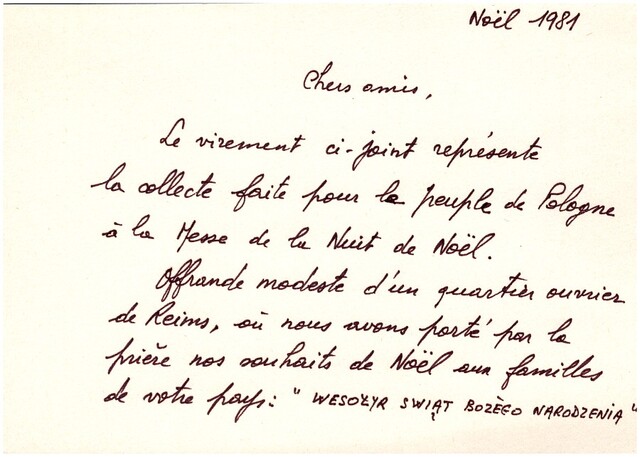 Noël 1981
Chers amis,
Le virement ci-joint représente
la collecte faite pour le peuple de Pologne
à la Messe de la Nuit de Noël.
Offrande modeste d'un quartier ouvrier
de Reims, où nous avons porté par la
prière nos souhaits de Noël aux familles
de votre pays: "WESOŁYR SWIĄT BOZÈGO NARODZENIA"